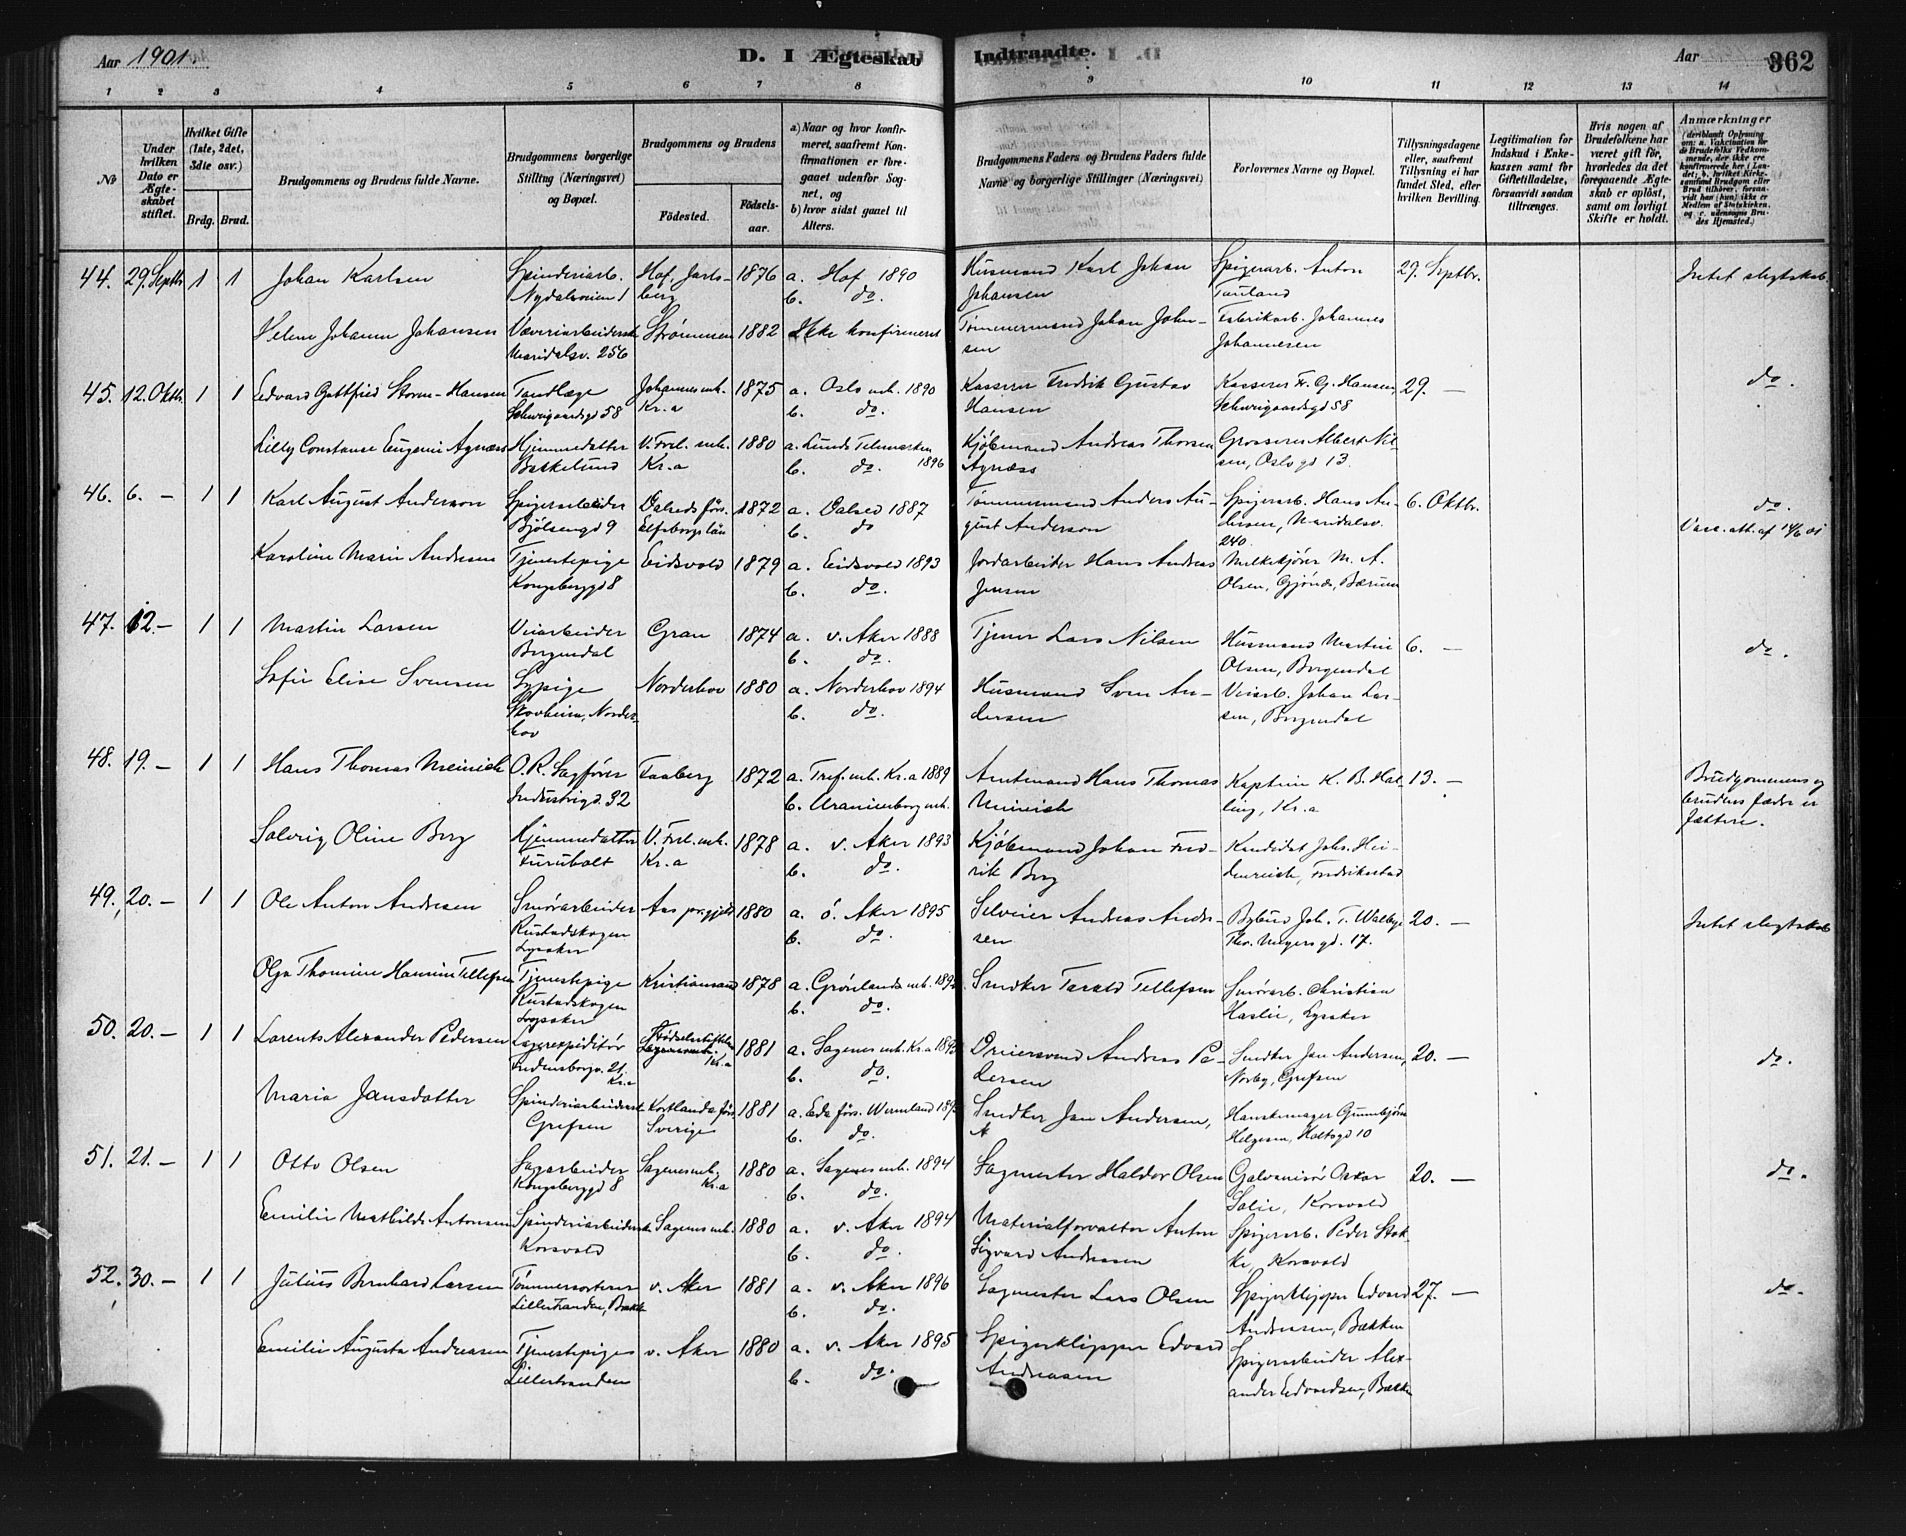 Aar 1901
D. I Ægteskab Indtraadte.
Aar
362
1 2 3 4 5 6 7 8 9 10 11 12 13 14
No
Under hvilken Dato er Ægteskabet stiftet.
Hvilket Gifte (1ste, 2det, 3die osv.)
Brdg. Brud.
Brudgommens og Brudens fulde Navne.
Brudgommens borgerlige Stilling (Næringsvei) og Bopæl.
Brudgommens og Brudens
Födested.
Födselsaar.
a) Naar og hvor konfirmeret, saafremt Konfirmationen er foregaaet udenfor Sognet, og
b) hvor sidst gaaet til Alters.
Brudgommens Faders og Brudens Faders fulde Navne og borgerlige Stillinger (Næringsvei)
Forlovernes Navne og Bopæl.
Tillysningsdagene eller, saafremt Tillysning ei har fundet Sted, efter hvilken Bevilling.
Legitimation for Indskud i Enkekassen samt for Giftetilladelse, forsaavidt saadan tiltrænges.
Hvis nogen af Brudefolkene har været gift för, hvorledes da det foregaaende Ægteskab er oplöst, samt om lovligt Skifte er holdt.
Anmærkninger
44. 29. Septbr. 1 1 Johan Karlsen Spinderiarb. Nydalsveien 1 Hof, Jarlsberg 1876 a. Hof 1890 b. do. Husmand Karl Johan Johansen Spigerarb. Anton 29. Septbr. Intet slegtskab.
Helene Johanne Johansen Maridalsv. 256 Strømmen 1882 Ikke konfirmeret Tømmermand Johan Johnsen Fabrikarb. Johannes Johannesen
45. 12. Oktb. 1 1 Edvard Gottfried Storm-Hansen Tandlæge Schweigaardsgd 58 Johannes mh. Kr.a 1875 a. Oslo mh. 1890 b. do. Kasserer Fredrik Gustav Hansen Kasserer Fr. G. Hansen, Schweigaardsgd 58 29. — do.
Lilly Constanse Eugenie Agnæss Hjemmedatter Bækkelund V. Frel. mh. Kr.a 1880 a. Lunde Telemarken 1896 b. do. Kjøbmand Andreas Thorsen Agnæss Grosserer Albert Nilsen, Oslogd 13.
46. 6. — 1 1 Karl August Anderson Spigerarbeider Bjölsengd 9 Elfsborgs län 1872 a. 1887 b. do Tømmermand Anders August Anderson Spigerarb. Hans Andersen, Maridalsv. 240. 6. Oktbr. do. Vacc. att. af 14/6 01
Karoline Marie Andresen Tjenestepige Kongsberggd 8 Eidsvold 1879 a. Eidsvold 1893 b. do. Jordarbeider Hans Andreas Jensen Melkekjører M. A. Olsen, Gjønæs, Bærum
47. 12. — 1 1 Martin Larsen Veiarbeider Borgendal Gran 1874 a. v. Aker 1888 b. do. Tjener Lars Nilsen Husmand Martin Olsen, Borgendal 6. — do.
Sofie Elise Svensen Sypige Skovheim, Norderhov Norderhov 1880 a. Norderhov 1894 b. do. Husmand Sven Andersen Veiarb. Johan Larsen, Borgendal
48. 19. — 1 1 Hans Thomas Meinich O. R. Sagfører Industrigd. 32 Faaberg 1872 a. Tref. mh. Kr.a 1889 b. Uranienborg mh. Amtmand Hans Thomas Meinich Kaptein K. B. Halling, Kr.a 13. — Brudgommens og brudens fædre er fættere.
Solveig Oline Borg Hjemmedatter Furuholt V. Frel. mh. Kr.a 1878 a. v. Aker 1893 b. do. Kjøbmand Johan Fredrik Borg Kandidat Johs. Heidenreich, Fredrikstad
49. 20. — 1 1 Ole Anton Andresen Smörarbeider Rustadskogen Lysaker Aas prgjeld 1880 a. ö. Aker 1895 b. do. Selveier Andreas Andersen Bybud Joh. T. Walbye Thv. Meyersgd. 17. 20. — Intet slegtskab
Olga Thomine Hansine Tellefsen Tjenestepige Rustadskogen Lysaker Kristiansand 1878 a. Grönlands mh. b. do. Smedker Tarald Tellefsen Smörarb. Christian Haslie, Lysaker
50. 20. — 1 1 Lorents Alexander Pedersen Lagerexpeditör Fredensborgv. 21. Kr.a Födselsstiftelsen Kr.a 1881 a. Sagenes mh. Kr.a b. do. Dreiersvend Andreas Pedersen Smedker Jan Andersen, Norby, Grefsen 20. — do.
Maria Jansdotter Grefsen Sverige 1881 a. Eda förs. Wermland b. do. Smedker Jan Andersen, Hanskemager Gunnbjörn Helgesen, Holtsgd 10
51. 21. — 1 1 Otto Olsen Sagarbeider Kongsberggd 8 Sagenes mh. Kr.a 1880 a. Sagenes mh. 1894 b. do. Sagmester Haldor Olsen Galvanisör Oskar Solie, Korsvold 20. — do.
Emilie Mathilde Antonsen Korsvold Sagenes mh. 1880 a. v. Aker 1894 b. do. Materialforvalter Anton Sigvard Andreasen Spigerarb. Peder Stokke, Korsvold
52. 30. — 1 1 Julius Bernhard Larsen Tømmersorterer v. Aker 1881 a. v. Aker 1896 b. do. Sagmester Lars Olsen Spigerklipper Edvard Andreasen, Bækken 27. — do.
Emilie Augusta Andreasen Tjenestepige Lillestranden v. Aker 1880 a. v. Aker 1895 b. do. Spigerklipper Edvard Andreasen Spigerarbeider Alexander Edvardsen, Bækken